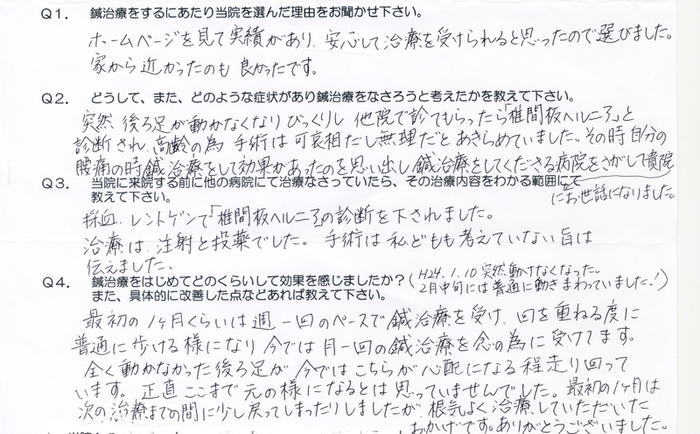 Q1. 鍼治療をするにあたり当院を選んだ理由をお聞かせ下さい。
ホームページを見て実績があり、安心して治療を受けられると思ったので選びました。
家から近かったのも良かったです。
Q2. どうして、また、どのような症状があり鍼治療をなさろうと考えたかを教えて下さい。
突然後ろ足が動かなくなりびっくりし他院で診てもらったら「椎間板ヘルニア」と
診断され高齢の為手術は可哀相だし無理だとあきらめていました。その時自分の
腰痛の時鍼治療をして効果があったのを思い出し鍼治療をしてくださる病院をさがして貴院
にお世話になりました。
Q3. 当院に来院する前に他の病院にて治療なさっていたら、その治療内容をわかる範囲にて
教えて下さい。
採血、レントゲンで「椎間板ヘルニア」の診断を下されました。
治療は、注射と投薬でした。手術は私どもも考えていない旨は
伝えました。
Q4. 鍼治療をはじめてどのくらいして効果を感じましたか?
また、具体的に改善した点などあれば教えて下さい。
(H24.1.10 突然動けなくなった。
2月中旬には普通に動きまわっていました!)
最初の1ヶ月くらいは週一回のペースで鍼治療を受け、回を重ねる度に
普通に歩ける様になり今では月一回の鍼治療を念の為に受けてます。
全く動かなかった後ろ足が今ではこちらが心配になる程走り回って
います。正直ここまで元の様になるとは思っていませんでした。最初の1ヶ月は
次の治療までの間に少し戻ってしまったりしましたが、根気よく治療していただいた
おかげです。ありがとうございました。